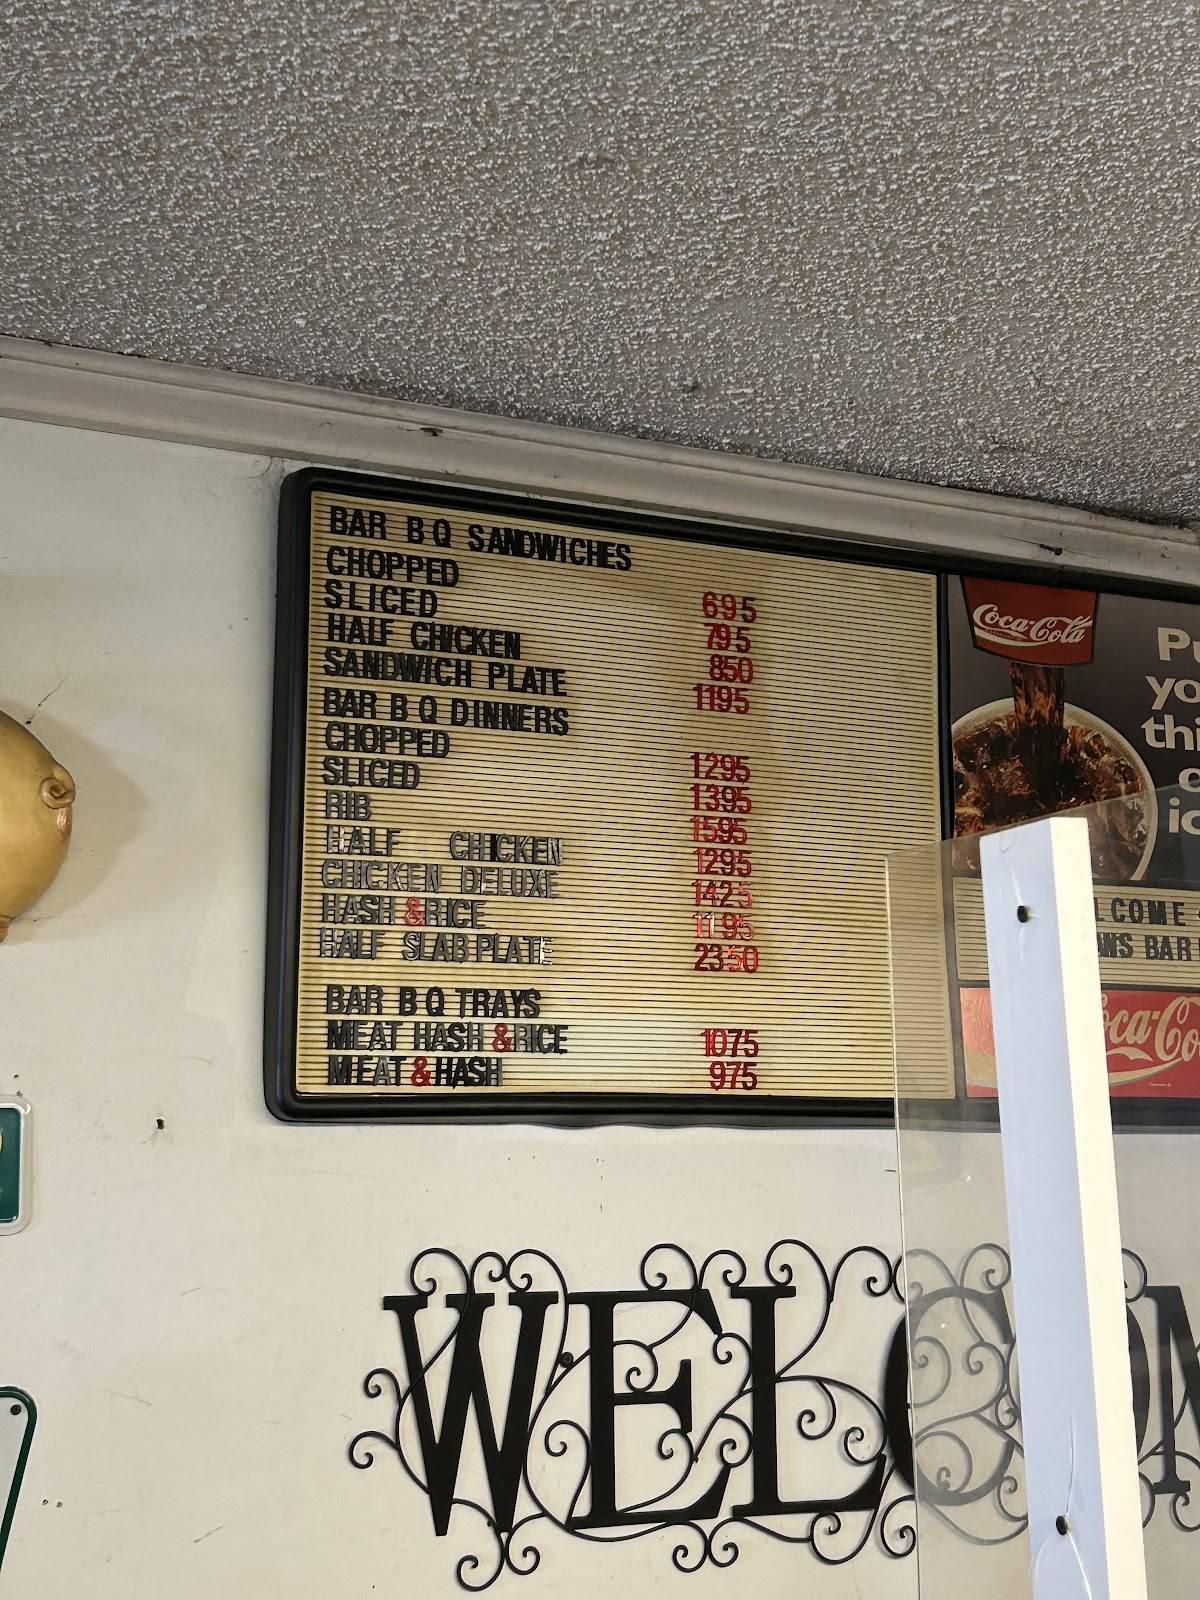 BAR B Q SANDWICHES
CHOPPED 695
SLICED 795
HALF CHICKEN 850
SANDWICH PLATE 1195
BAR B Q DINNERS
CHOPPED 1295
SLICED 1395
RIB 1595
HALF CHICKEN 1295
CHICKEN DELUXE 1425
HASH & RICE 1195
HALF SLAB PLATE 2350
BAR B Q TRAYS
MEAT HASH & RICE 1075
MEAT & HASH 975
Coca-Cola
yo
thi
ic
LCOME
NS BAR
Coca-Co
WELCOM